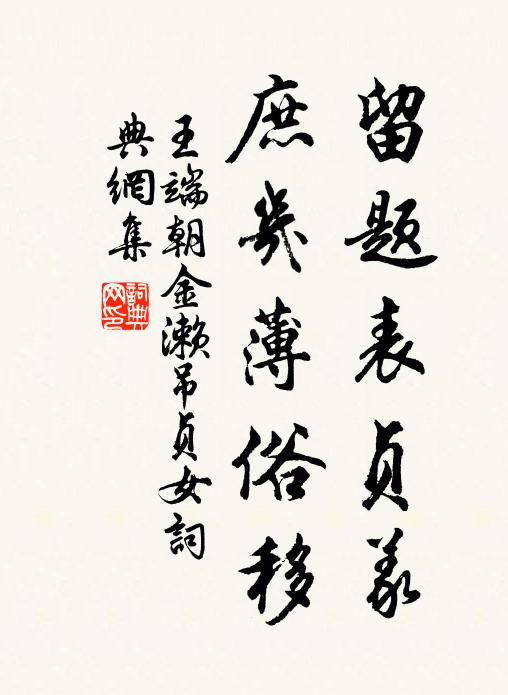 留題表貞義
庶幾薄俗移
王端朝金瀨吊貞女詞
典網集
詞典网印